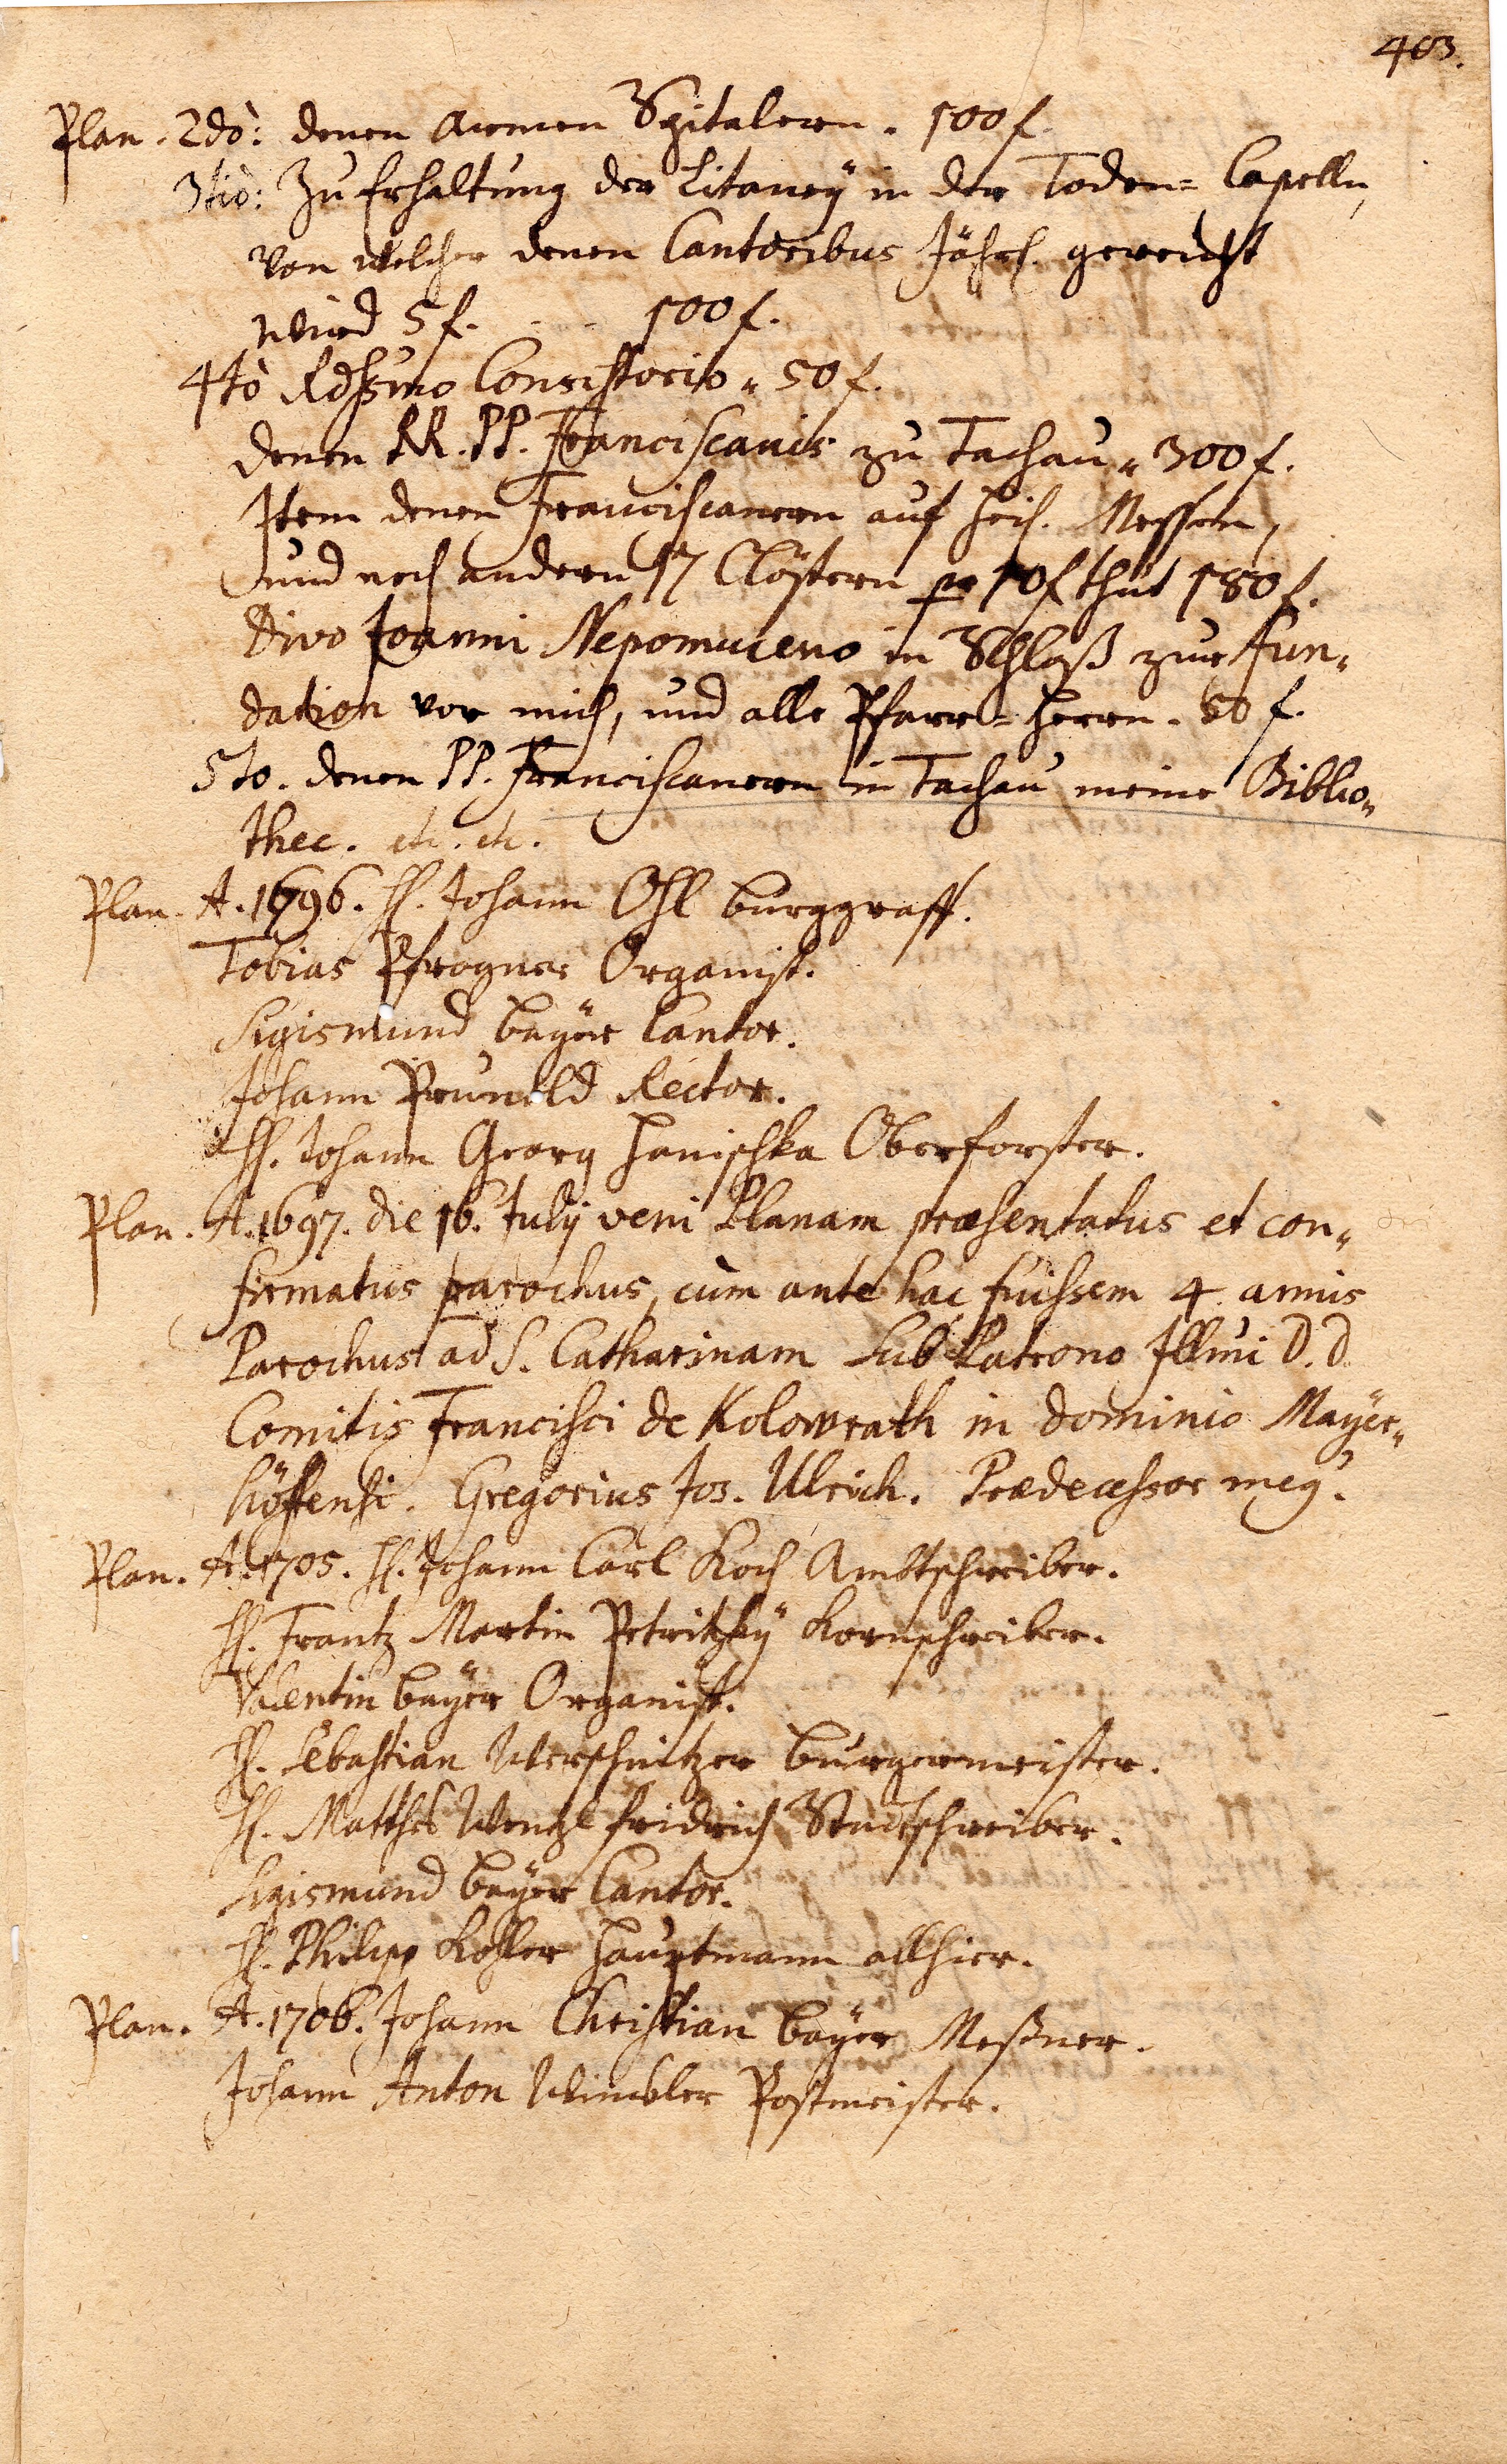 403.
Plan. 2dò: denen Armen Spitalern. 100 f.
3tiò: Zu Erhaltung der Litaney in der Toden= Capelln,
von welcher denen Cantoribus Jährl. gereicht
wird 5 f. - - 100 f.
4tò Rdssimo Consistorio " 50 f.
denen RR. PP. Franciscanis zu Tachau " 300 f.
Item denen Franciscanern auf heil. Messen,
und noch andern 17 Clöstern pr 10 f thut 180 f.
Divo Joanni Nepomuceno in Schloß zur Fun„
dation vor mich, und alle Pfarr=Herrn. 50 f.
5to. denen PP. Franciscanern in Tachau meine Biblio„
thec. etc. etc.
Plan. A. 1696. H. Johann Ohl Burggraff.
Tobias Pfrogner Organist.
Sigismund Beyer Cantor.
Johann Rector.
H. Johann Georg Hanischka Oberforster.
Plan. A. 1697. die 16. July veni Planam præsentatus et con„
firmatus parochus, cum ante hac fuissem 4 annis
Parochus ad S. Catharinam sub Patrono Illmi D. D.
Comitis Francisci de Kolowrath in dominio Mayer„
höffensi. Gregorius Jos. Ulrich. Prædecessor meg.
Plan. A. 1705. H. Johann Carl Koch Ambtschreiber.
H. Frantz Martin Petritzky Kornschreiber.
Valentin Beyer Organist.
H. Sebastian Werschnitzer Burgermeister.
H. Matthes Wentzl Fridrich Stadtschreiber.
Sigismund Beyer Cantor.
H. Philipp Kohler Hauptmann allhier.
Plan. A. 1706. Johann Christian Beyer Meßner.
Johann Anton Winckler Postmeister.